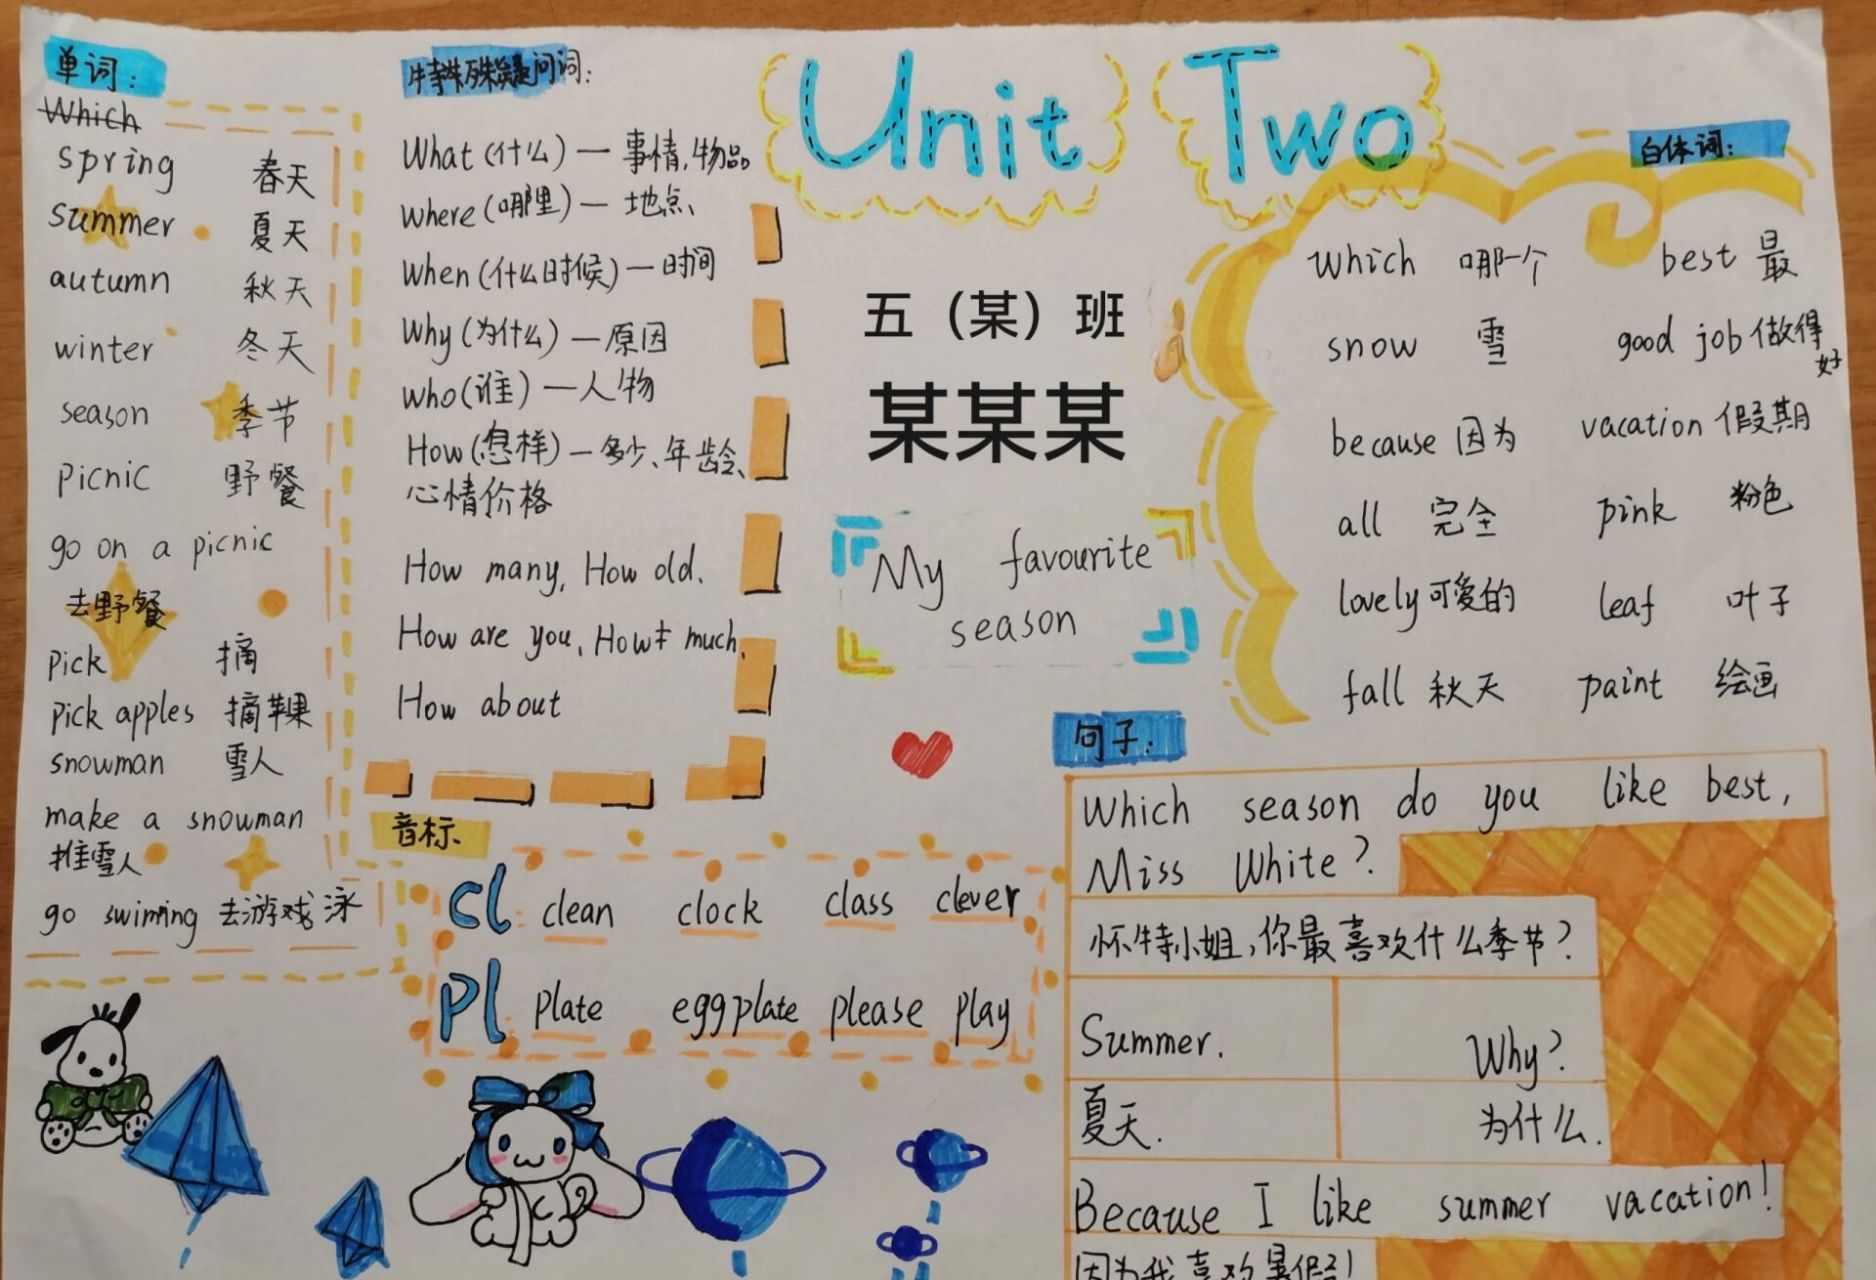 单词：
Which
spring 春天
summer 夏天
autumn 秋天
winter 冬天
season 季节
picnic 野餐
go on a picnic
去野餐
pick 摘
pick apples 摘苹果
snowman 雪人
make a snowman
堆雪人
go swimming 去游戏泳
特殊疑问词：
What (什么) — 事情,物品
where (哪里) — 地点、
When (什么时候) — 时间
Why (为什么) — 原因
who (谁) — 人物
How (怎样) — 多少、年龄、
心情价格
How many, How old.
How are you, How much,
How about
Unit Two
五（某）班
某某某
My favourite
season
白体词：
which 哪一个 best 最
snow 雪 good job 做得
好
because 因为 vacation 假期
all 完全 pink 粉色
lovely 可爱的 leaf 叶子
fall 秋天 paint 绘画
音标
cl clean clock class clever
pl plate eggplate please play
句子：
Which season do you like best,
Miss White?
怀特小姐,你最喜欢什么季节?
Summer. Why?
夏天. 为什么.
Because I like summer vacation!
因为我喜欢暑假!